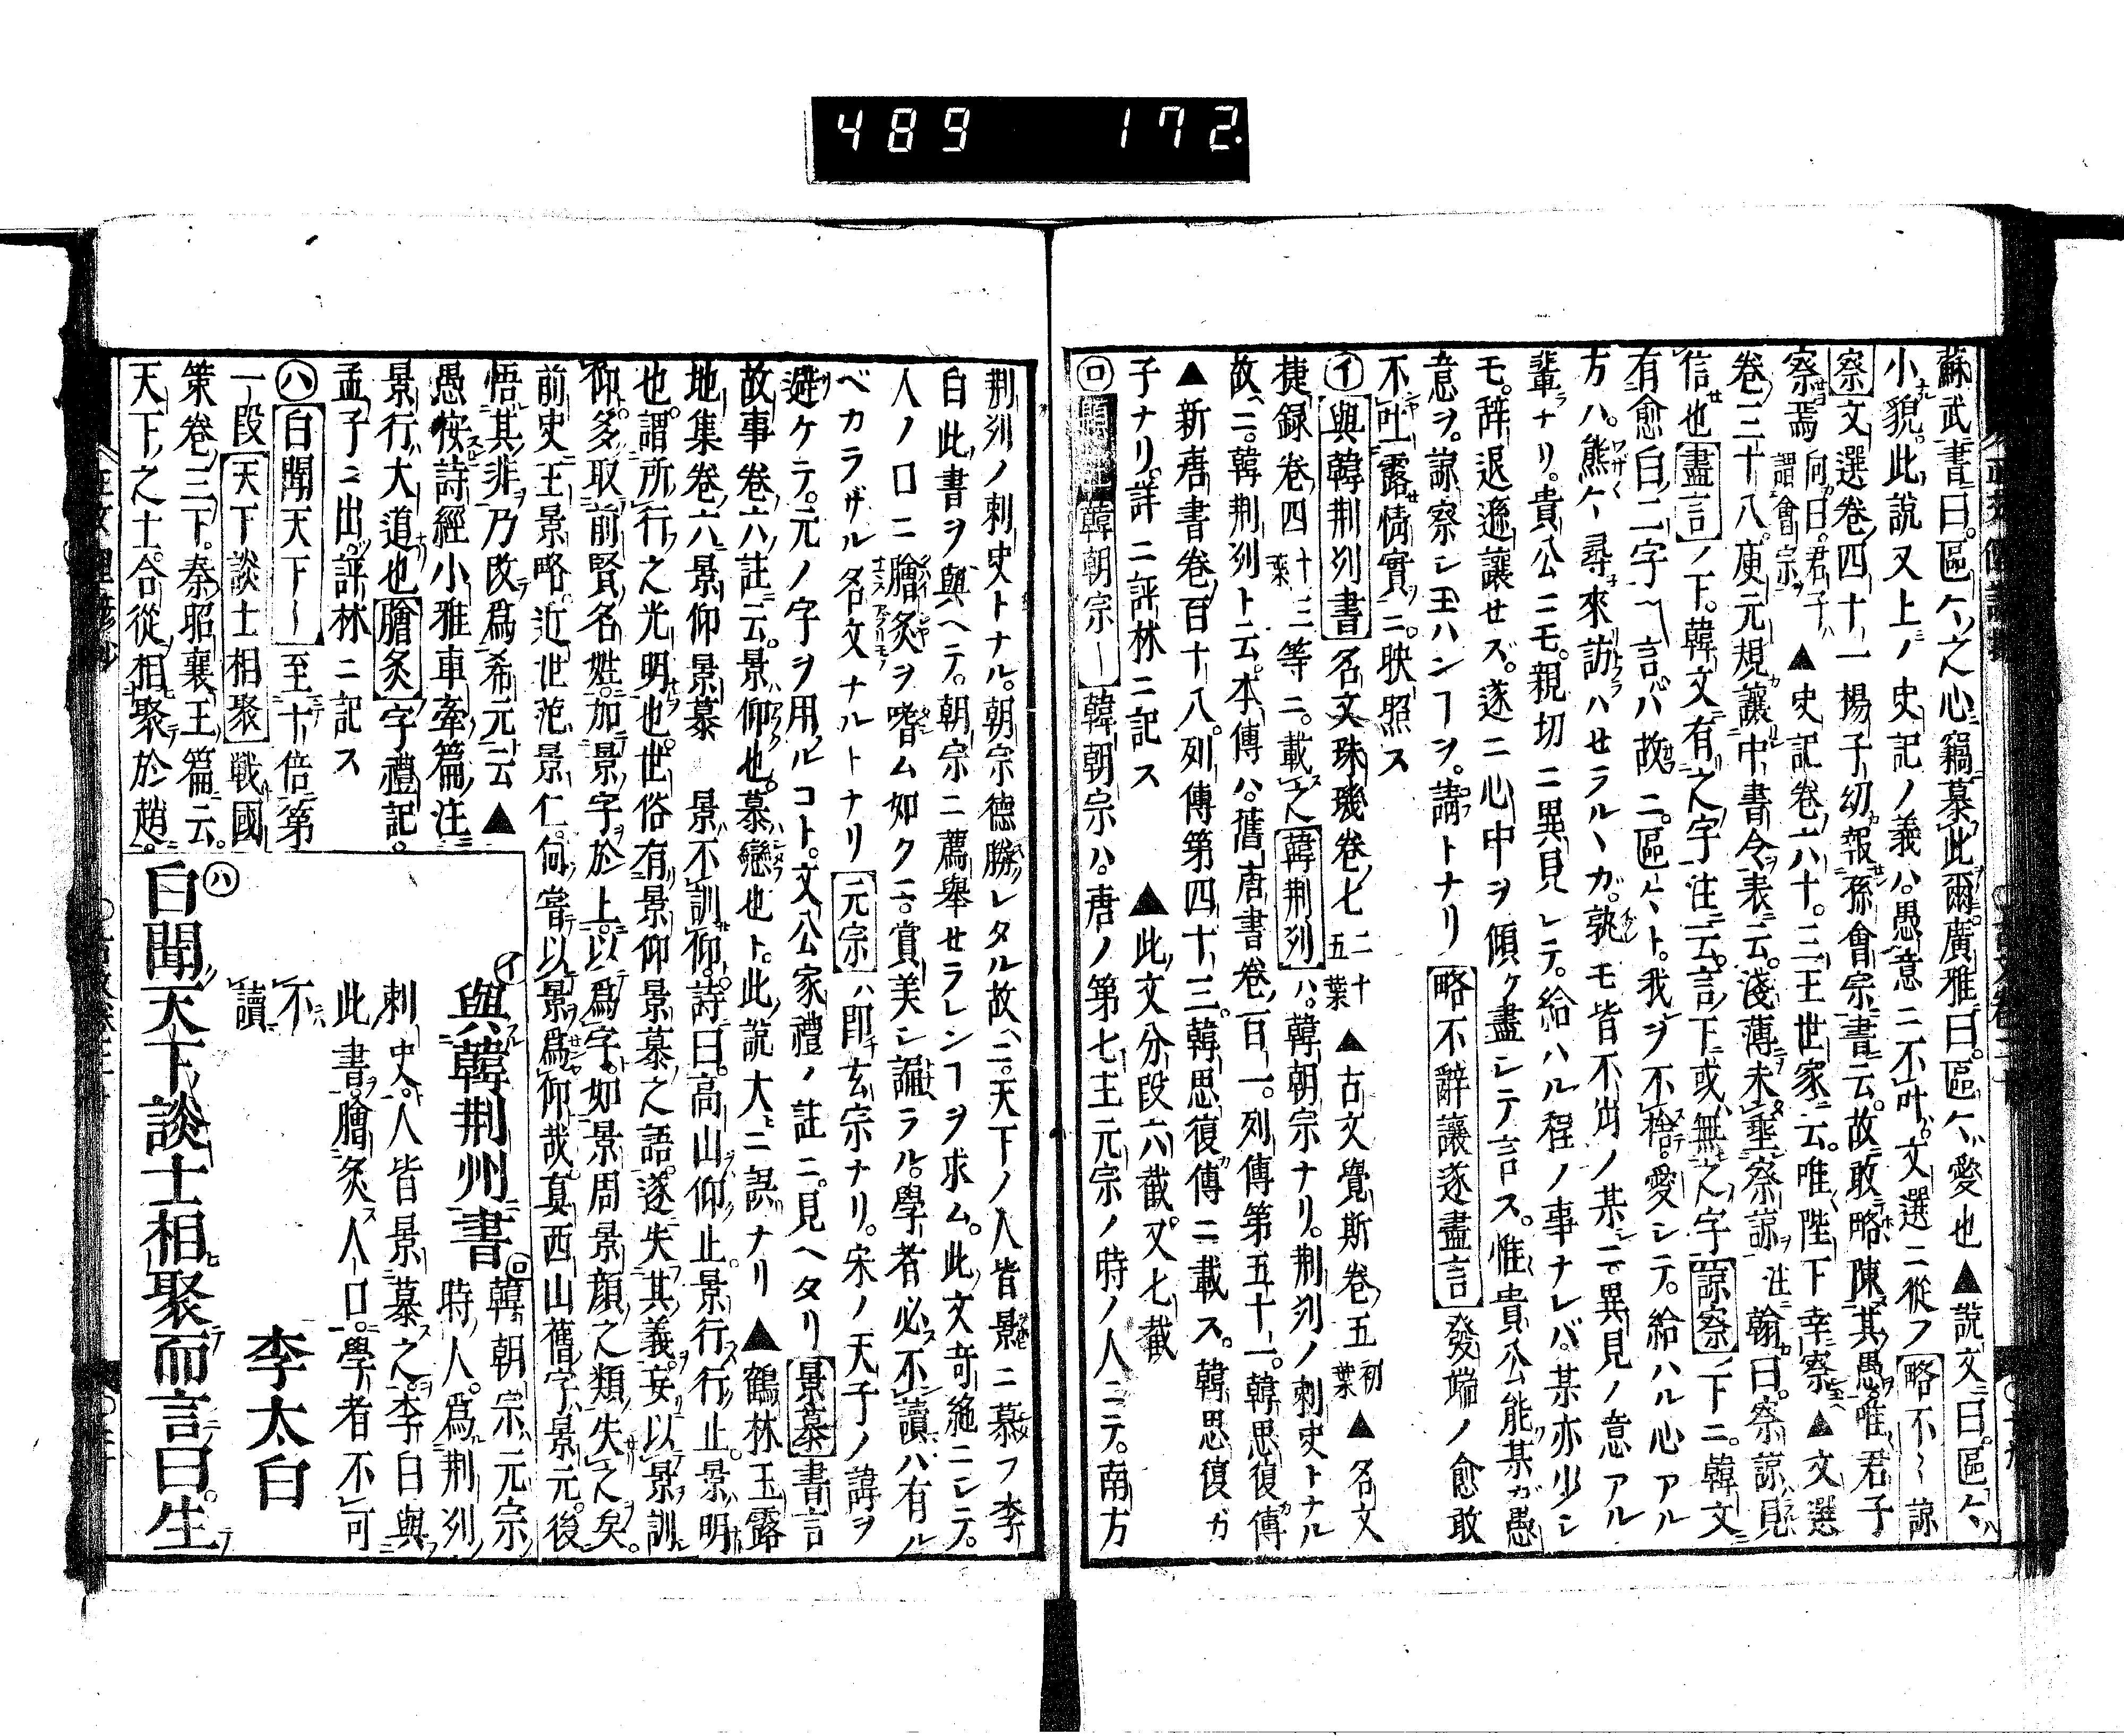 489 172
蘇武書曰區〻之心竊慕此爾廣雅曰區〻愛也▲說文曰區〻
小貌此說又上ノ史記ノ義ハ愚意ニ不叶文選ニ從フ 略不〜諒
察 文選卷四十一楊子幼報孫會宗書云故敢略陳其愚唯君子
察焉 向曰君子謂會宗 ▲史記卷六十三王世家云唯陛下幸察▲文選
卷三十八庾元規讓中書令表云淺薄未垂察諒 注翰曰察諒見
信也 盡言ノ下韓文有之字注云言下或無之字 諒察ノ下ニ韓文
有愈白二字〜言バ故ニ區〻ト我ヲ不捨愛シテ給ハル心アル
方ハ熊〻尋來訪ハセラルヽガ孰モ皆不肖ノ某ニ異見ノ意アル
輩ナリ貴公ニモ親切ニ異見シテ給ハル程ノ事ナレバ某亦少シ
モ辞退遜讓セズ遂ニ心中ヲ傾ケ盡シテ言ス惟貴公能某ガ愚
意ヲ諒察シ玉ハンヿヲ請トナリ 略不辭讓遂盡言 發端ノ愈敢
不吐露情實ニ映照ス
㋑與韓荆州書 名文珠璣卷七 二十五葉 ▲古文覺斯卷五 初葉 ▲名文
捷録卷四 十三葉 等ニ載之 韓荆州ハ韓朝宗ナリ荆州ノ刺史トナル
故ニ韓荆州ト云本傳ハ舊唐書卷百一列傳第五十一韓思復傳
▲新唐書卷百十八列傳第四十三韓思復傳ニ載ス韓思復ガ
子ナリ詳ニ評林ニ記ス ▲此文分段六截又七截
㋺ 韓朝宗〜 韓朝宗ハ唐ノ第七主元宗ノ時ノ人ニテ南方
荆州ノ刺史トナル朝宗德勝レタル故ニ天下ノ人皆景ニ慕フ李
白此書ヲ與ヘテ朝宗ニ薦舉セラレンヿヲ求ム此文奇絶ニシテ
人ノ口ニ膾炙ヲ嗜ム如クニ賞美シ誦ラル學者必不讀ハ有ル
ベカラザル名文ナルトナリ 元宗ハ即玄宗ナリ宋ノ天子ノ諱ヲ
避ケテ元ノ字ヲ用ルコト文公家禮ノ註ニ見ヘタリ 景慕 書言
故事卷六註云景仰也慕戀也ト此說大ニ誤ナリ▲鶴林玉露
地集卷六景仰景慕 景不訓仰詩曰高山仰止景行行止景明
也謂所行之光明也世俗有景仰景慕之語遂失其義妄以景訓
仰多取前賢名姓加景字於上以爲字如景周景顏之類失之矣
前史王景略近世范景仁何嘗以景爲仰哉真西山舊字景元後
悟其非乃改爲希元云▲
愚按詩經小雅車舝篇注
景行大道也 膾炙字禮記
孟子ニ出評林ニ記ス
㋩白聞天下〜至十倍第
一段 天下談士相聚 戰國
策卷三下秦昭襄王篇云
天下之士合從相聚於趙
㋑與韓荆州書 ㋺韓朝宗元宗
時人爲荆州
刺史人皆景慕之李白與
此書膾炙人口學者不可
不讀
李太白
㋩白聞天下談士相聚而言曰生